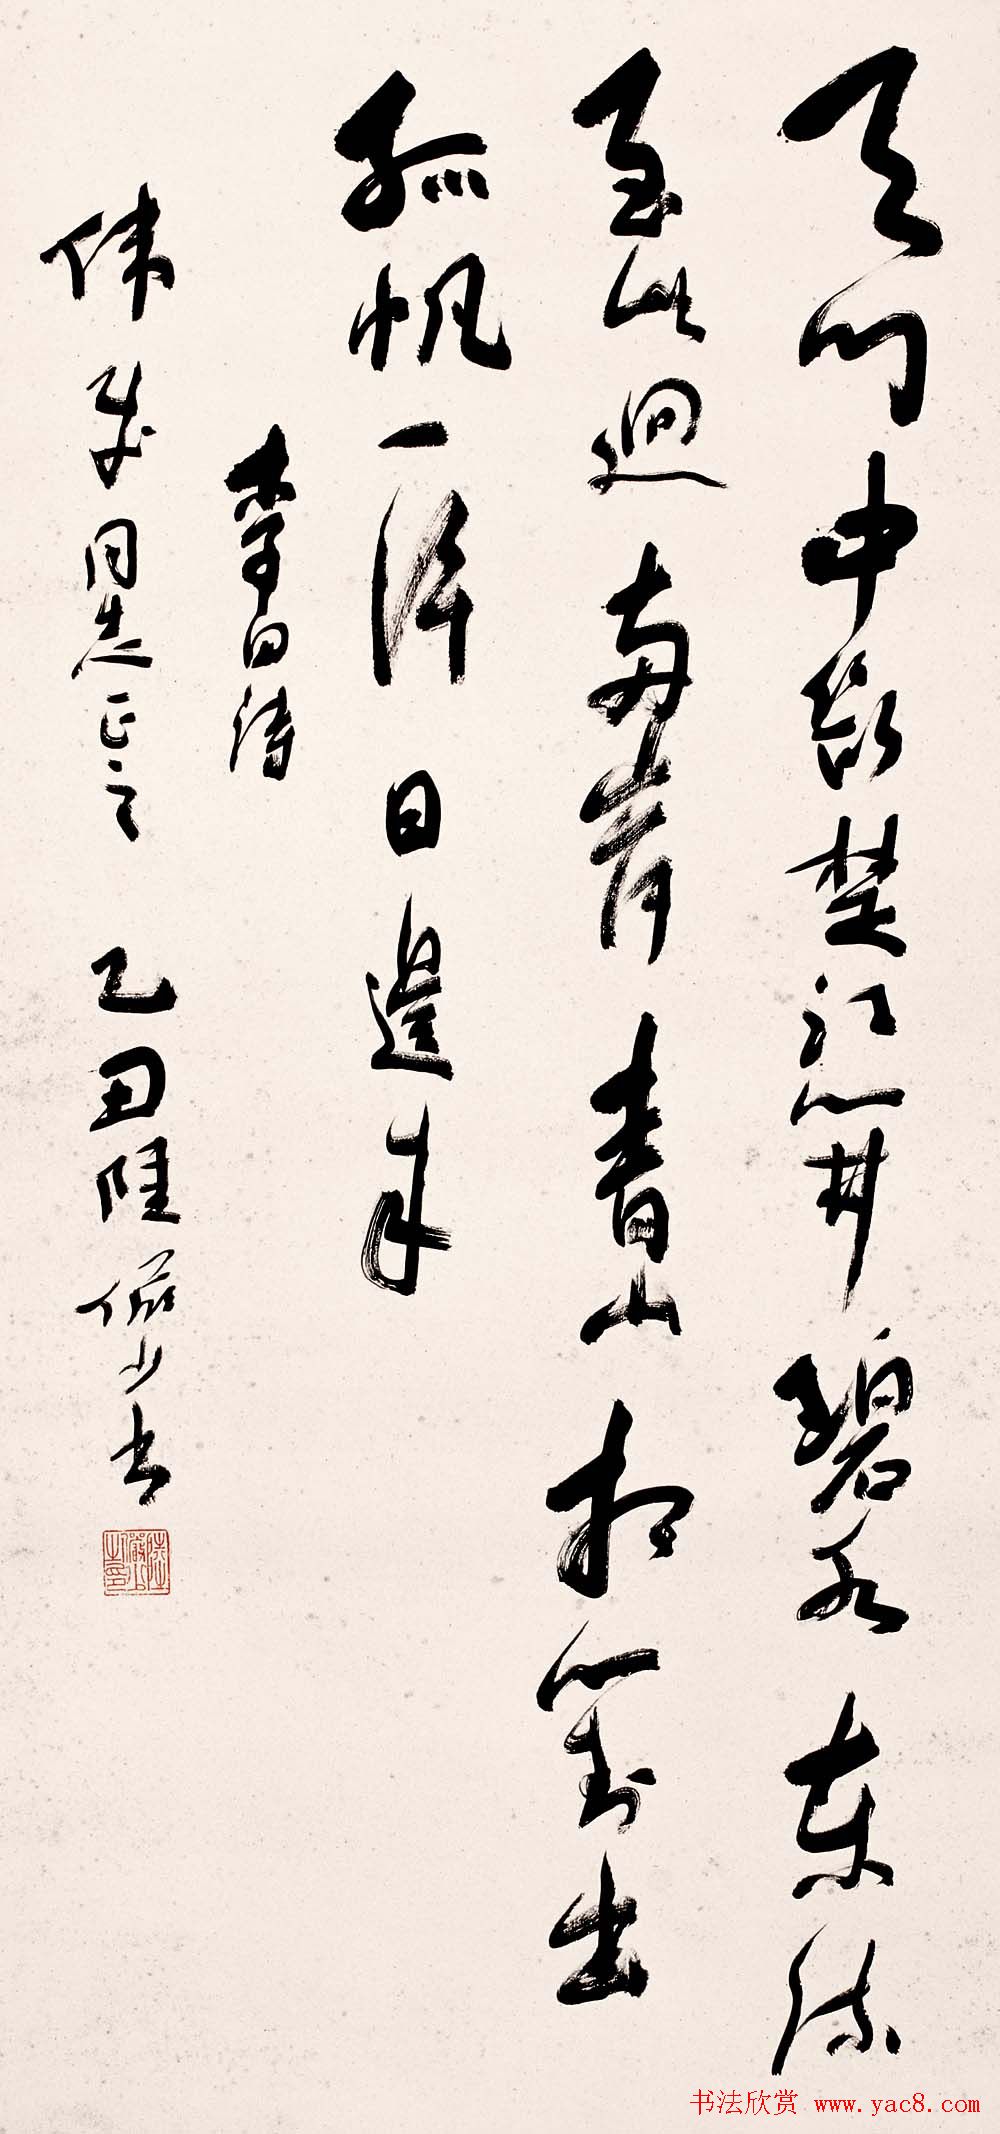 天門中斷楚江開碧水東流
至此迴兩岸青山相對出
孤帆一片日邊来
李白詩
伟同志正之 乙丑陸儼少书
陸儼少之印
书法欣赏 www.yac8.com